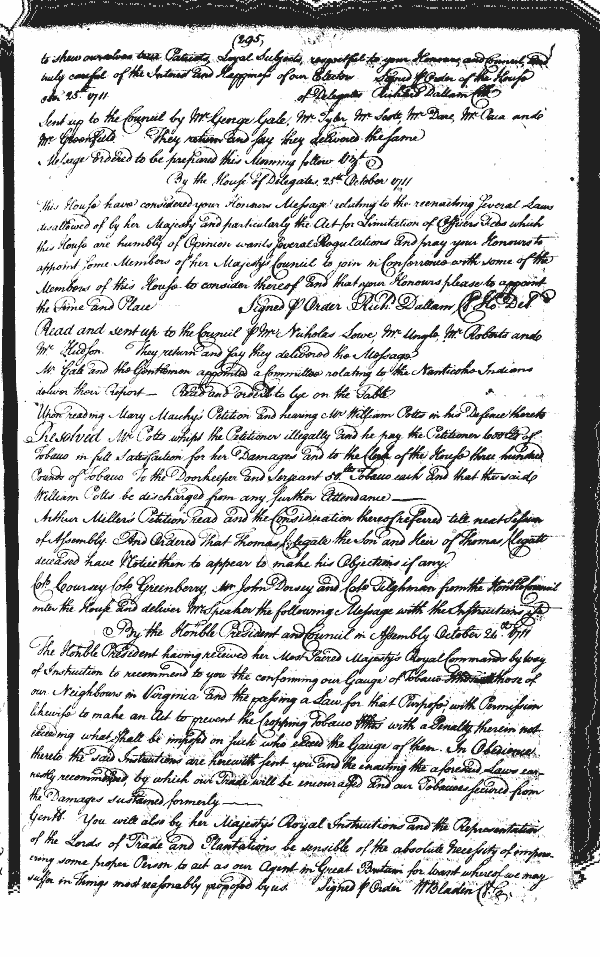 (295)
to shew ourselves true Patriots, Loyal Subjects, respectful to your Honours, and Council, and
truly careful of the Interest and Happiness of our Elector Signed p Order of the House
25th 1711 of Delegates Richd Dallam Clk
Sent up to the Council by Mr George Gale, Mr Tyler, Mr Scott, Mr Dare, Mr Paca and
Mr Greenfield They return and say they delivered the same
Message Ordered to be prepared this Morning follow Vizt
By the House of Delegates, 25th October 1711
This House have considered your Honours Message relating to the reenacting Several Laws
disallowed of by her Majesty and particularly the Act for Limitation of Officers Fees which
this House are humbly of Opinion wants Several Regulations and pray your Honours to
appoint some Members of her Majesty's Council to join in Conferrence with some of the
Members of this House to consider thereof and that your Honours please to appoint
the Time and Place Signed p Order Richd Dallam Cl Ho: Del
Read and sent up to the Council p Mr Nicholas Lowe, Mr Ungle, Mr Roberts and
Mr Hudson. They return and say they delivered the Message
Mr Gale and the Gentlemen appointed a Committee relating to the Nanticoke Indians
deliver their report — Read and orderd to lye on the Table
Upon reading Mary Petition and hearing Mr William Potts in his Defence thereto
Resolved Mr Potts whipt the Petitioner illegally and he pay the Petitioner of
Tobacco in full Satisfaction for her Damages and to the Clerk of the House three hundred
Pounds of Tobacco To the Doorkeeper and Serjeant 50lb Tobacco each and that the said
William Potts be discharged from any further Attendance —
Arthur Miller's Petition read and the Consideration thereof referred till next Session
of Assembly. And Ordered That Thomas the Son and Heir of Thomas
deceased have Notice then to appear to make his Objections if any.
Colo Coursey Colo Greenberry, Mr John Dorsey and Colo Tilghman from the Honble Council
enter the House and deliver Mr Speaker the following Message with the Instructions
By the Honble President and Council in Assembly October 26th 1711
The Honble President having received her Most Sacred Majesty's Royal Commands by way
of Instruction to recommend to you the conforming our Gauge of Tobacco those of
our Neighbours in Virginia and the passing a Law for that Purpose with Permission
likewise to make an Act to prevent the Cropping Tobacco with a Penalty therein not
exceeding what shall be imposed on such who exceed the Gauge of them. In Obedience
thereto the said Instructions are herewith sent you and the enacting the aforesaid Laws ear-
nestly recommended, by which our Trade will be encouraged and our Tobaccos secured from
the Damages sustained formerly —
Gentn. You will also by her Majesty's Royal Instructions and the Representation
of the Lords of Trade and Plantations be sensible of the absolute Necessity of empow-
ering some proper Person to act as our Agent in Great Britain for want whereof we may
suffer in Things most reasonably proposed by us. Signed p Order W Bladen Cl Co.